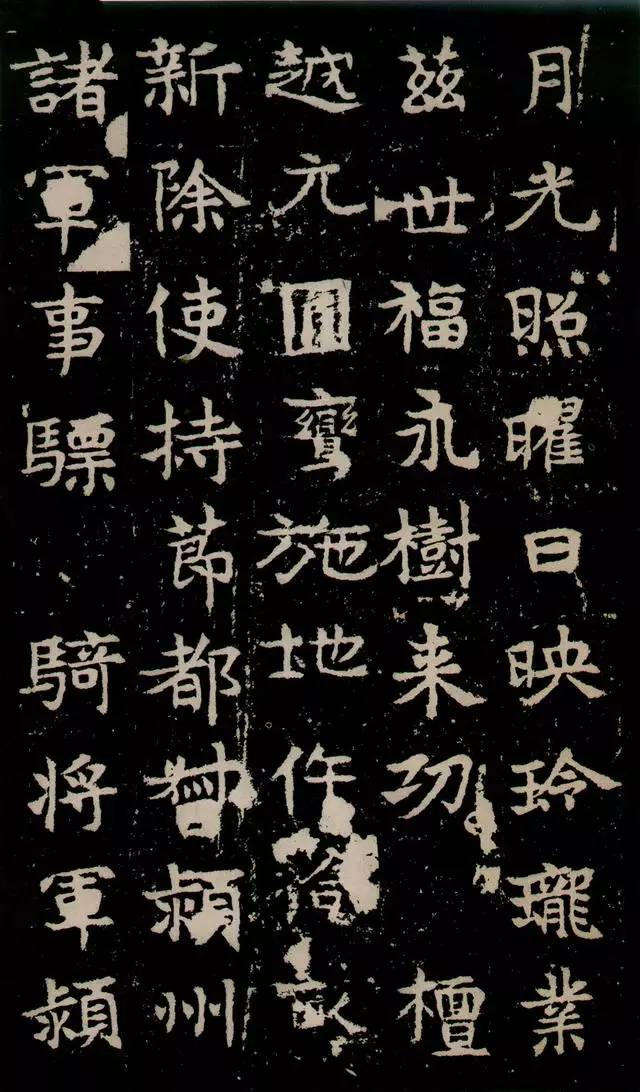 月光照曜日映玲瓏業
兹世福永樹来功檀
越元圓鸞施地作
新除使持節都督潁州
諸軍事驃騎将軍潁